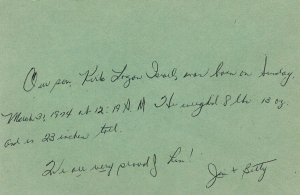 Our son, Kirk Logan was born on Sunday,
March 3, 1974 at 12:19 A.M. He weighed 8 lbs 13 oz.
and is 23 inches tall.
We are very proud of him!
Jim + Betty